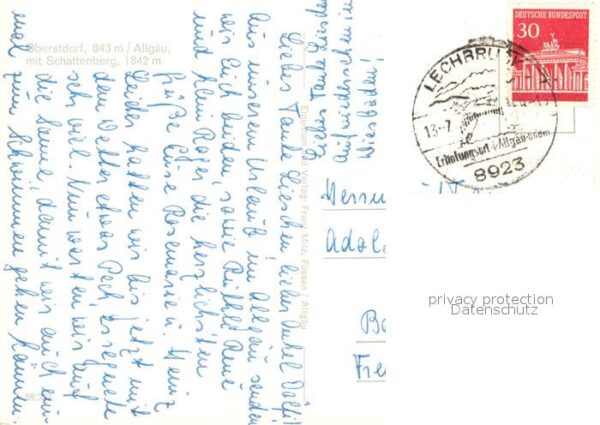 Oberstdorf, 843 m / Allgäu,
mit Schattenberg, 1842 m
Liebes Tante Lieschen, lieber Onkel Dolfi!
Aus unserem Urlaub im Allgäu senden
wir Euch beiden, sowie
und Klein Roger die herzlichsten
Grüße Eure Rosemarie u. Heinz
Leider hatten wir bis jetzt mit
dem Wetter etwas Pech, es regnete
sehr viel. Nun warten wir auf
die Sonne, damit wir auch ein-
mal zum Schwimmen gehen können.
Liebes Tante
Auf Wiedersehen in
Wiesbaden!
Verlag Franz Milz, Füssen / Allgäu
DEUTSCHE BUNDESPOST
30
LECHBRUCK
13.-7.
Erholungsort i. Allgäu
8923
Adol
Ba
Fre
privacy protection
Datenschutz